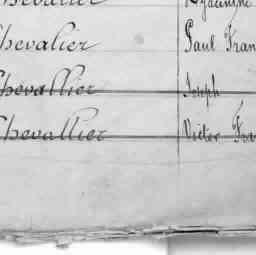 Chevalier Paul Fran
Chevallier Joseph
Chevallier Victor Fra